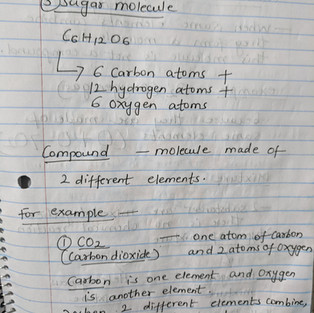 ③ Sugar molecule
C6H12O6
↳ 6 Carbon atoms +
12 hydrogen atoms +
6 oxygen atoms
Compound — molecule made of
2 different elements.
for example —
① CO2 — one atom of carbon
(carbon dioxide) and 2 atoms of oxygen
Carbon is one element and oxygen
is another element.
2 different elements combine,